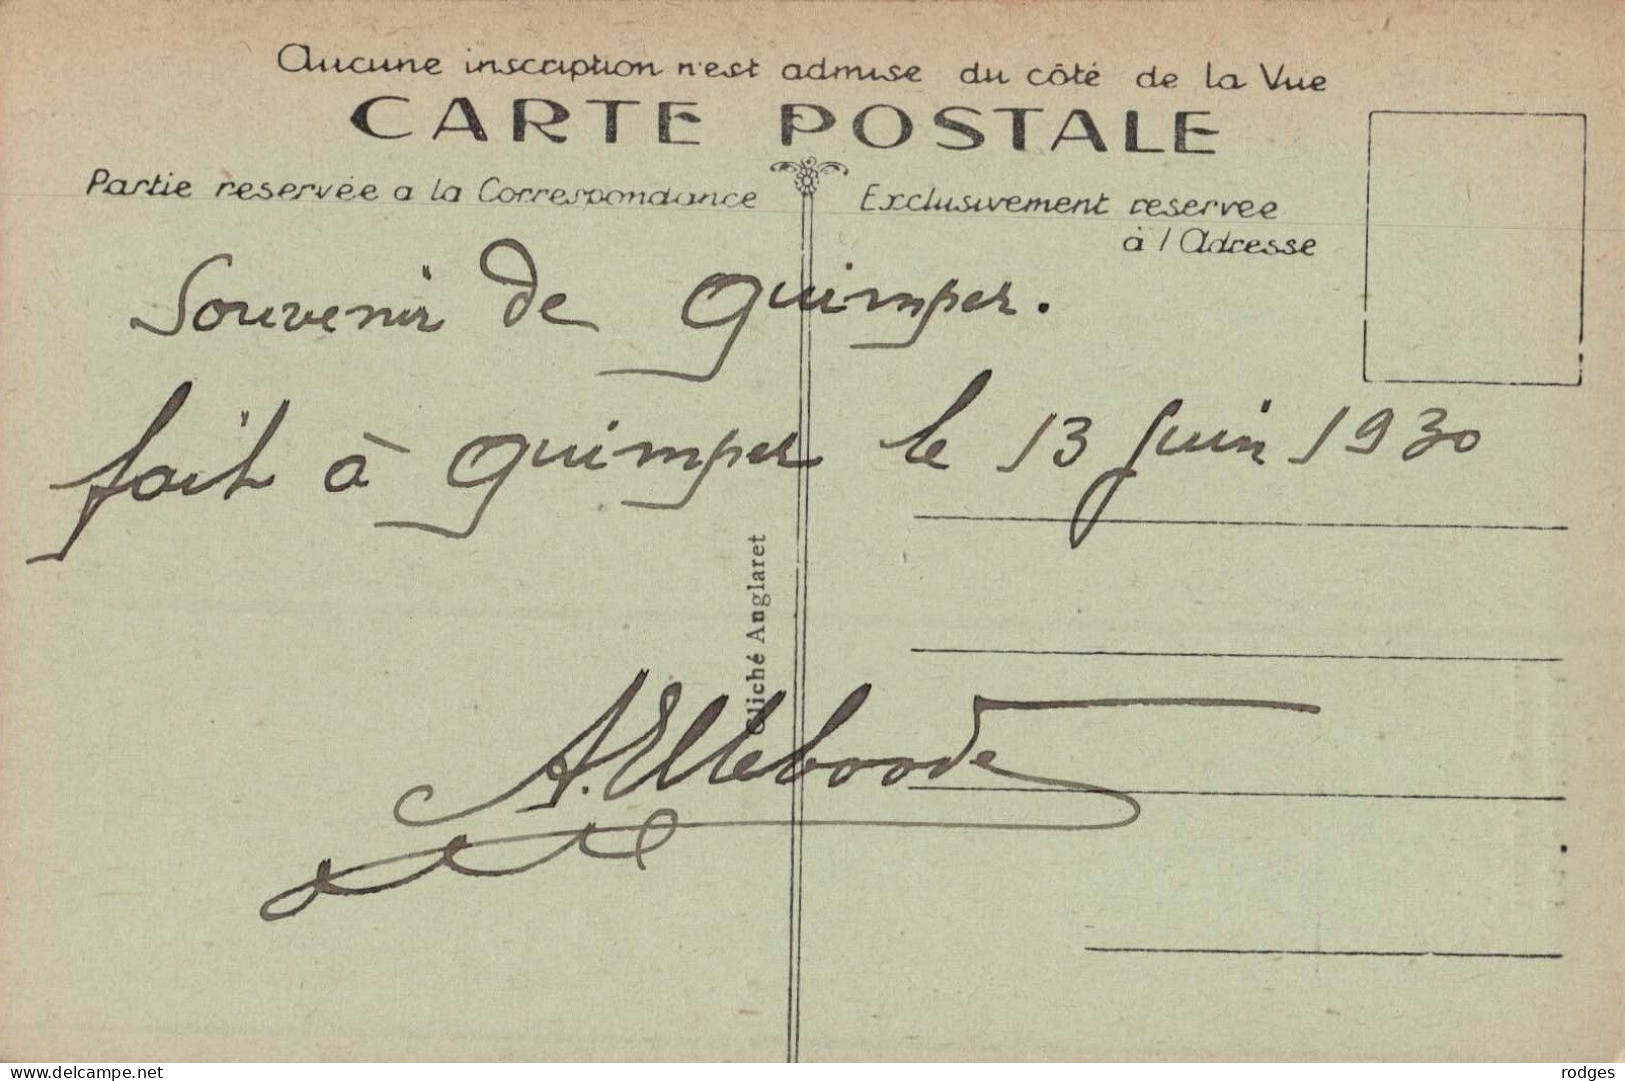 Aucune inscription n'est admise du côté de la Vue
CARTE POSTALE
Partie reservée a la Correspondance
Exclusivement reservee
à l Adresse
Souvenir de Quimper.
fait à Quimper le 13 Juin 1930
Cliché Anglaret
A. Elleboode
www.delcampe.net
rodges